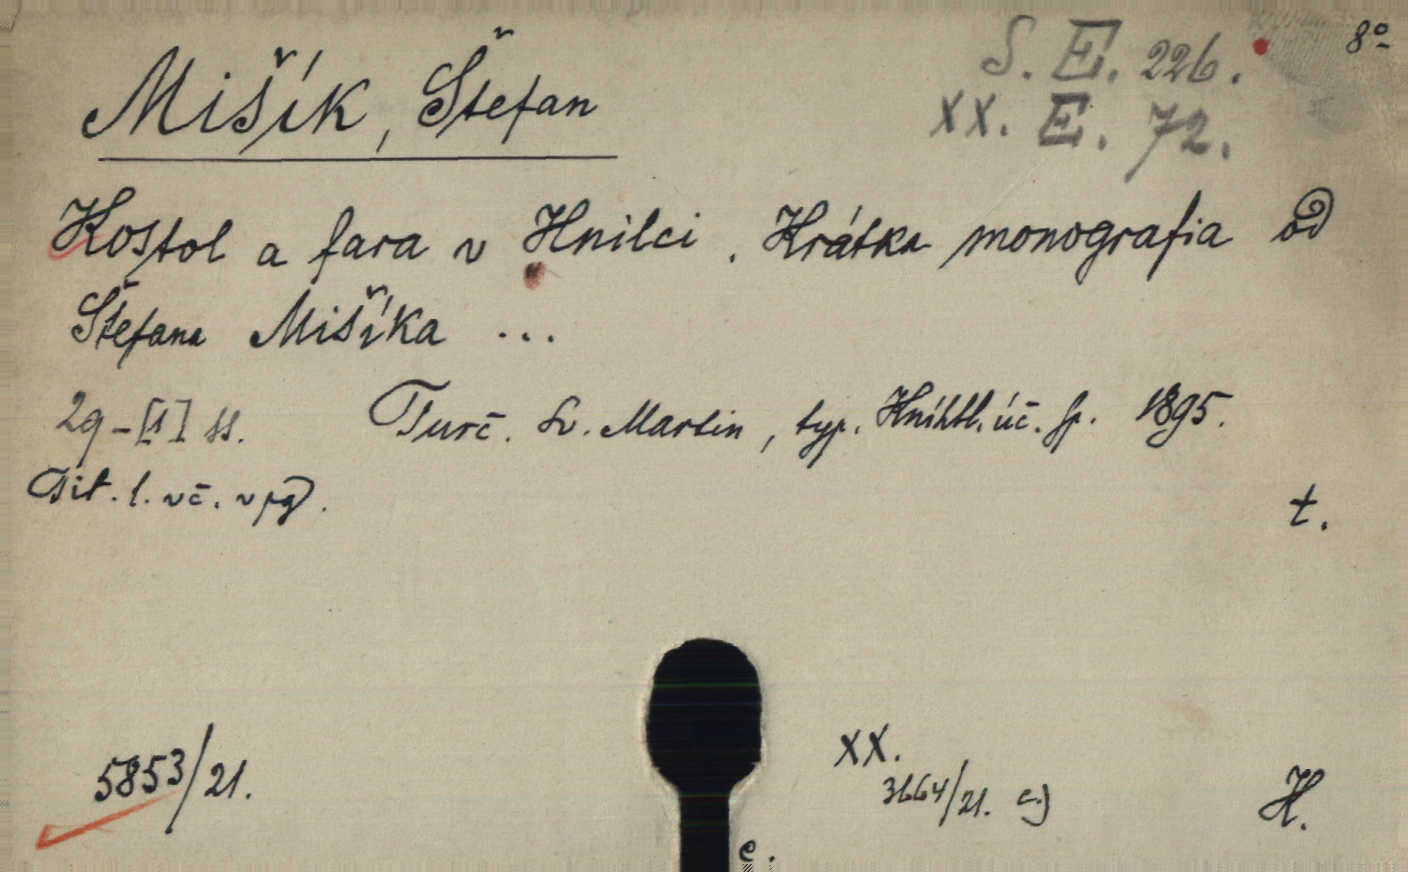 S. E. 226. 8°
Mišík, Štefan
XX. E. 72.
Kostol a fara v Hnilci. Krátka monografia od
Štefana Mišíka ...
29-[1] ss. Turč. Sv. Martin, typ. Kníhtl. úč. sp. 1895.
Tit. l. vč. v pg.
t.
5853/21.
XX.
3664/21. c)
H.
e.